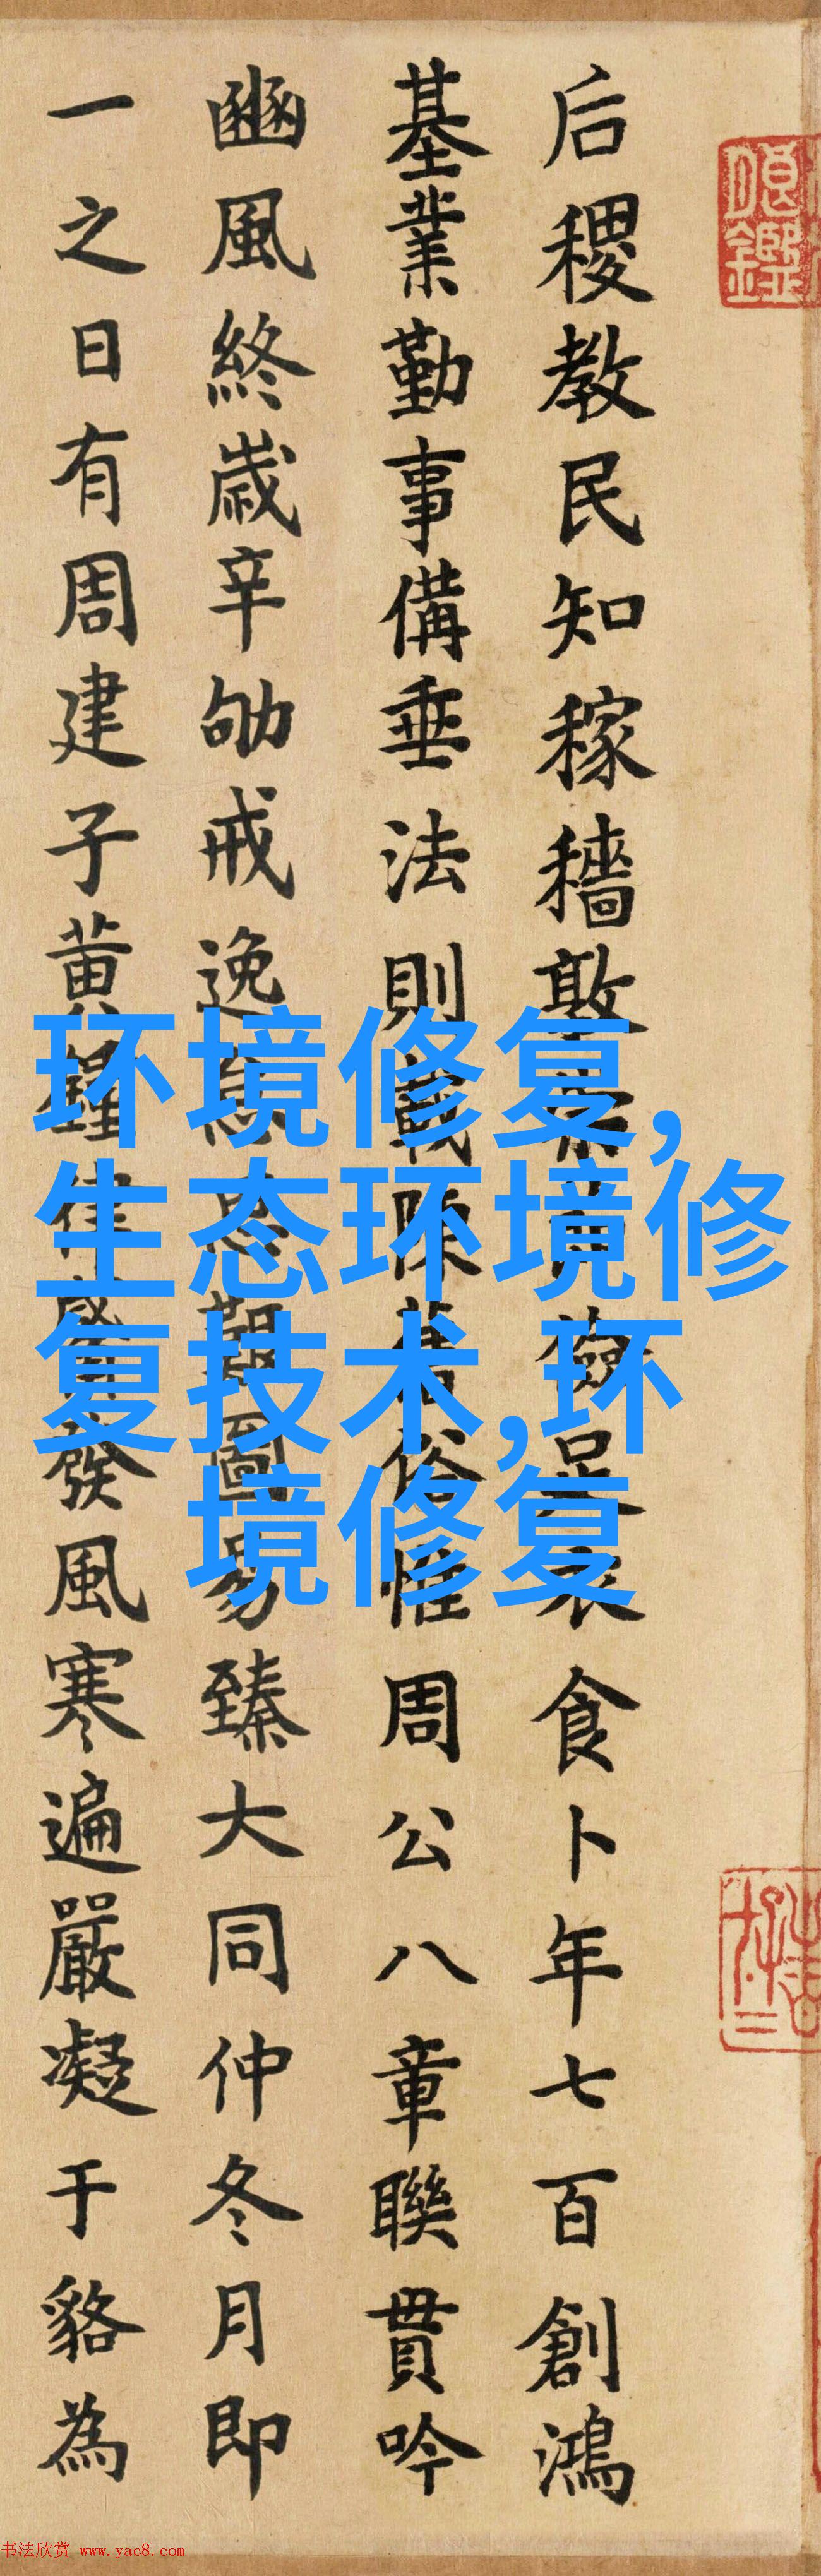 后稷教民知稼穡敦食卜年七百創鴻
基業勤事備垂法則載陳舊俗惟周公八章聯貫吟
豳風終歲辛劬戒逸艱圖易臻大同仲冬月即
一之日有周建子黃鐘律發風寒遍嚴凝于貉為
环境修复,
生态环境修
复技术,环
境修复
书法欣赏 www.yac8.com